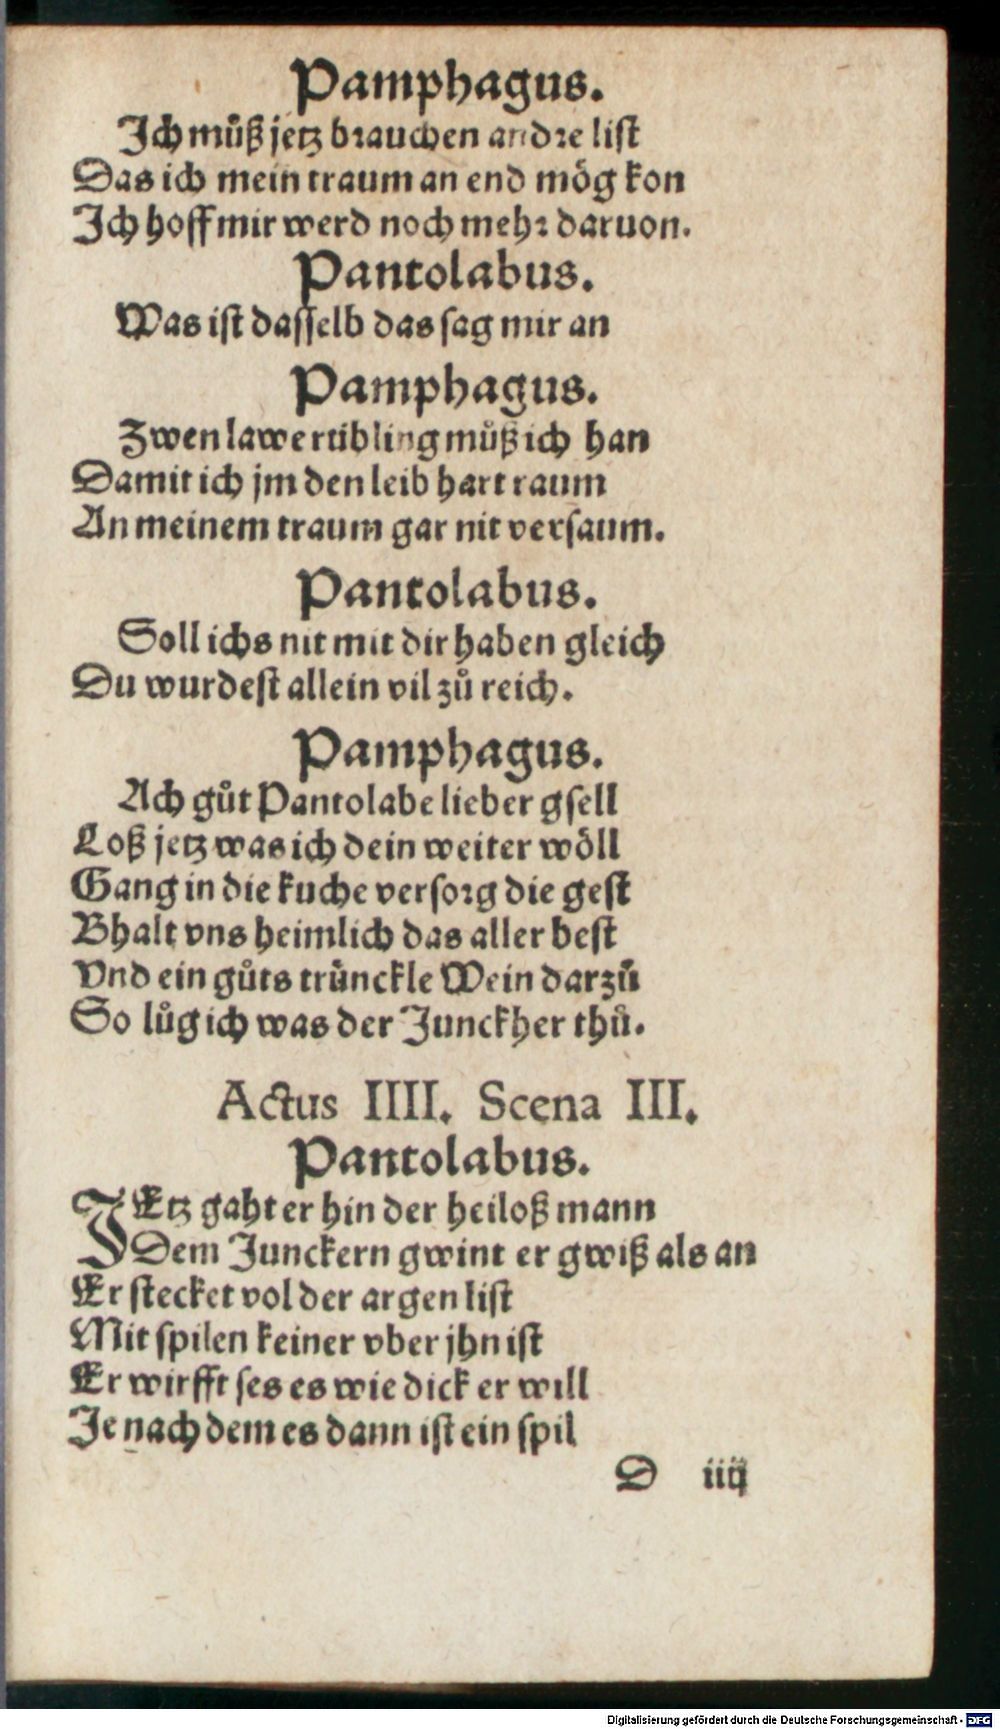 Pamphagus.
Ich můß jetz brauchen andre list
Das ich mein traum an end mög kon
Ich hoff mir werd noch mehr daruon.
Pantolabus.
Was ist dasselb das sag mir an
Pamphagus.
Zwen lawertübling můß ich han
Damit ich jm den leib hart raum
An meinem traum gar nit versaum.
Pantolabus.
Soll ichs nit mit dir haben gleich
Du wurdest allein vil zů reich.
Pamphagus.
Ach gůt Pantolabe lieber gsell
Loß jetz was ich dein weiter wöll
Gang in die kuche versorg die gest
Bhalt vns heimlich das aller best
Vnd ein gůts trünckle Wein darzů
So lůg ich was der Junckher thů.
Actus IIII. Scena III.
Pantolabus.
IEtz gaht er hin der heiloß mann
Dem Junckern gwint er gwiß als an
Er stecket vol der argen list
Mit spilen keiner vber jhn ist
Er wirfft ses es wie dick er will
Je nach dem es dann ist ein spil
D iiij
Digitalisierung gefördert durch die Deutsche Forschungsgemeinschaft - DFG